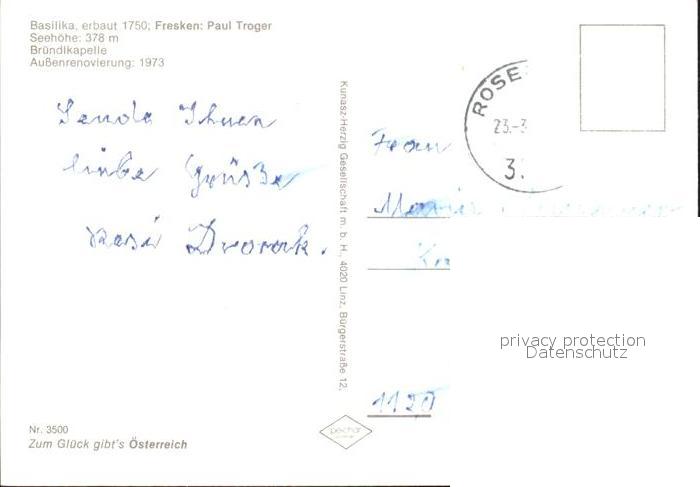 Basilika, erbaut 1750; Fresken: Paul Troger
Seehöhe: 378 m
Bründlkapelle
Außenrenovierung: 1973
Sende Ihnen
liebe Grüße
Rosi Dworak.
Kunasz-Herzig Gesellschaft m. b. H., 4020 Linz, Bürgerstraße 12.
ROSE
23.-3
3.
Frau
Maria
1120
privacy protection
Datenschutz
Nr. 3500
Zum Glück gibt's Österreich